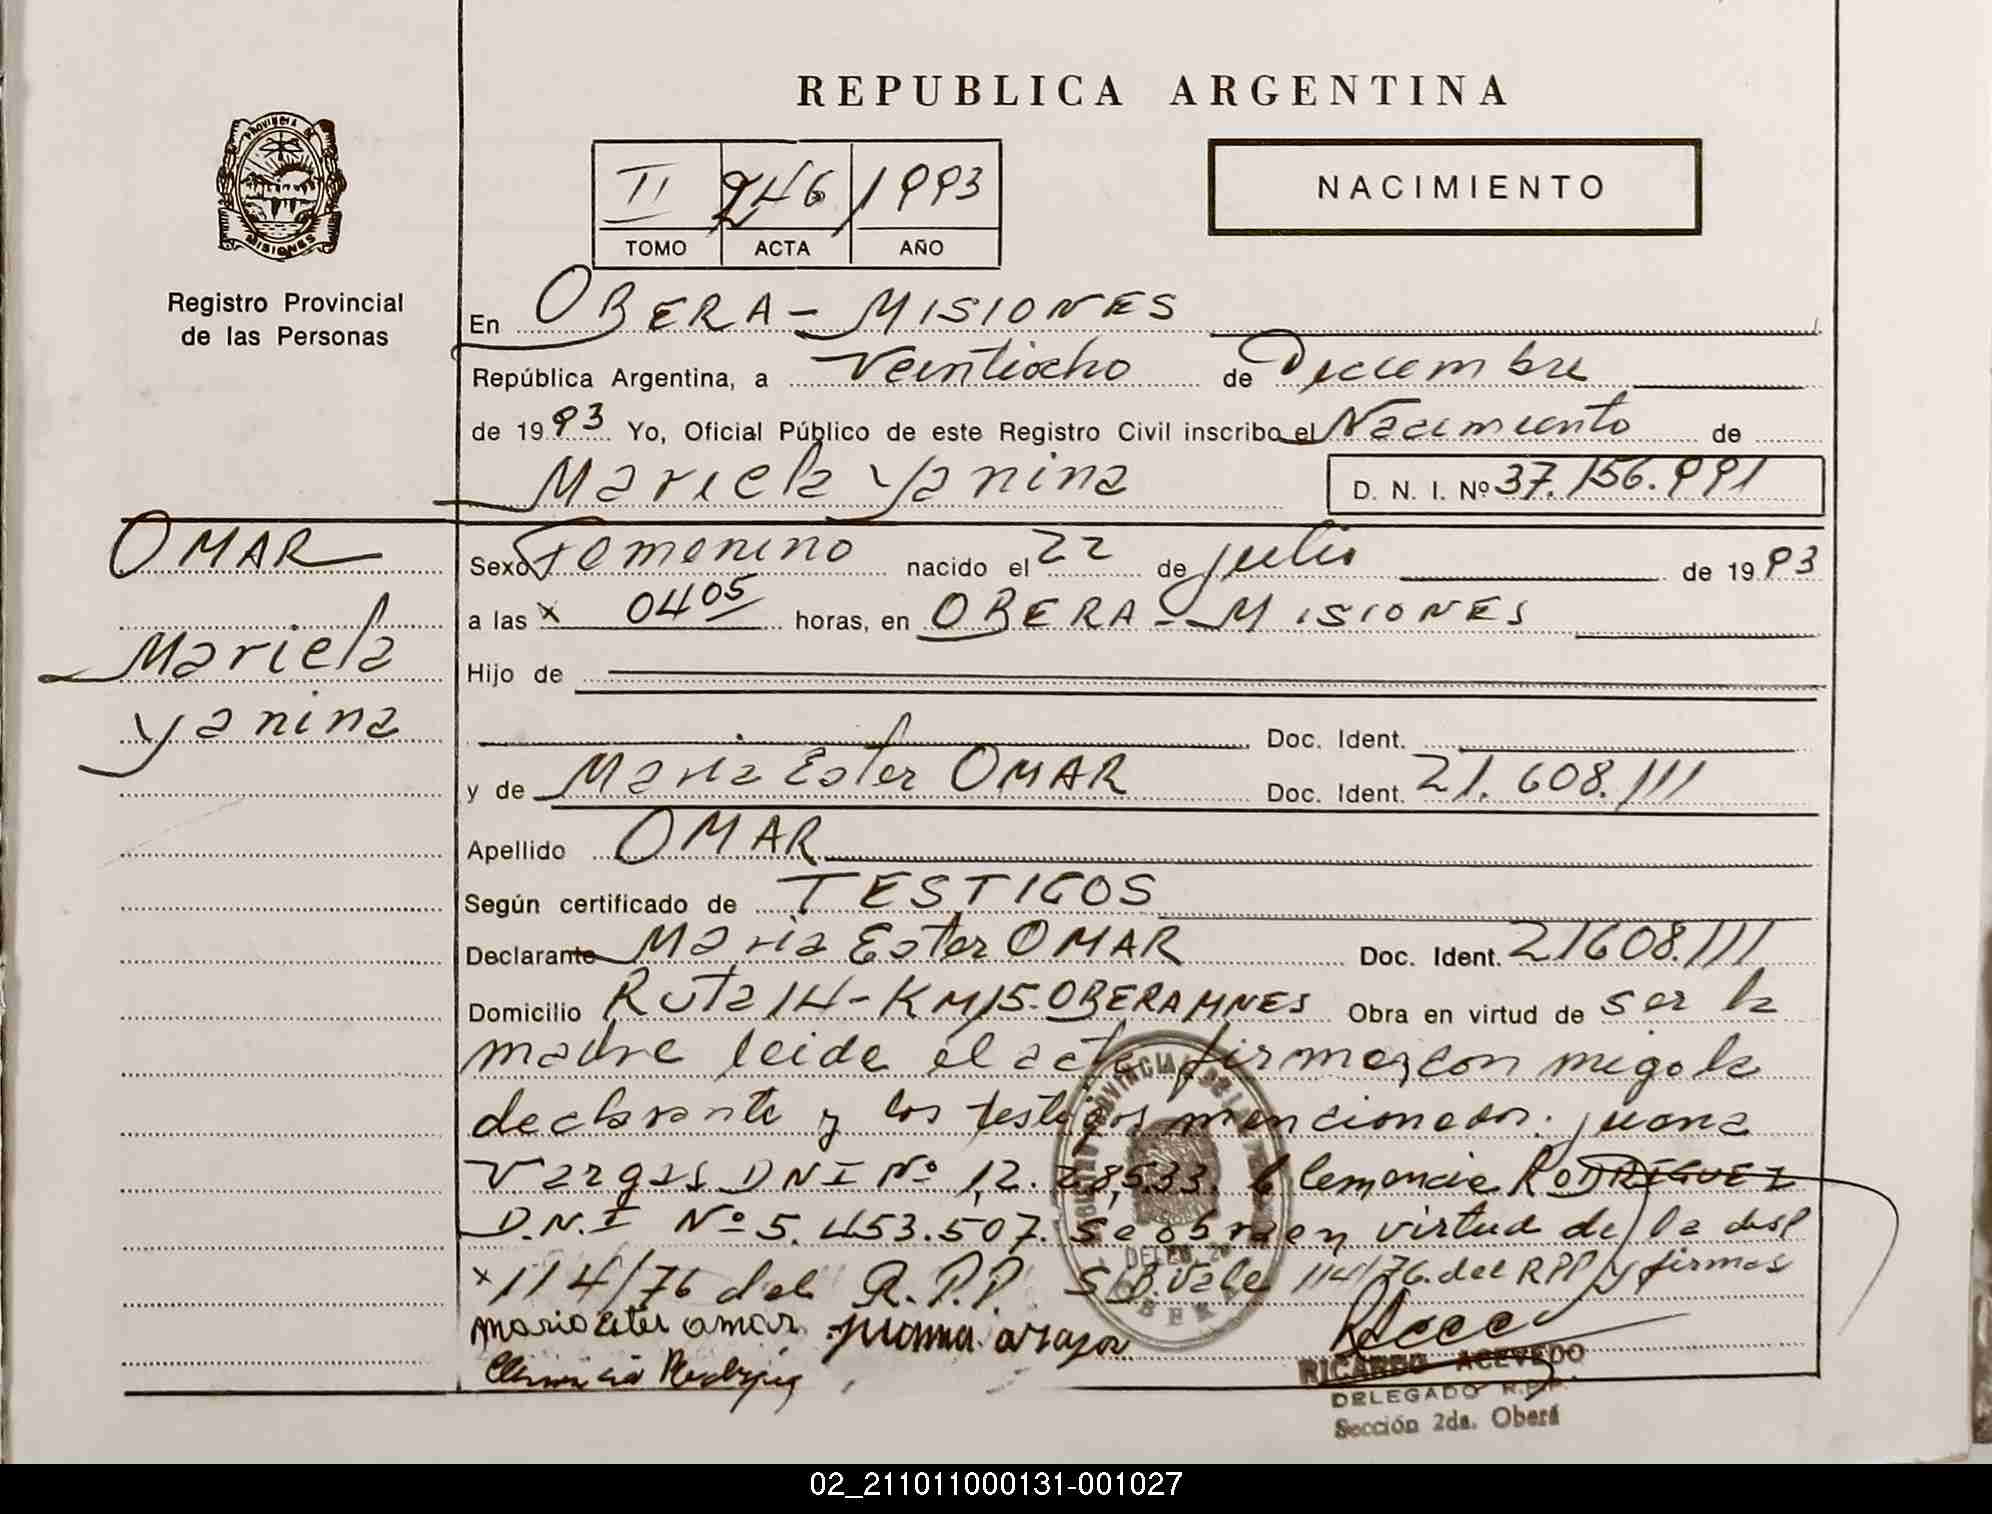 REPUBLICA ARGENTINA
PROVINCIA DE
MISIONES
Registro Provincial
de las Personas
II 246 1993
TOMO ACTA AÑO
NACIMIENTO
En OBERA - MISIONES
República Argentina, a Veintiocho de Diciembre
de 1993 Yo, Oficial Público de este Registro Civil inscribo el Nacimiento de
Mariela Yanina D. N. I. Nº 37.156.991
OMAR
Mariela
Yanina
Sexo Femenino nacido el 22 de julio de 1993
a las 0405 horas, en OBERA - MISIONES
Hijo de
Doc. Ident.
y de Maria Ester OMAR Doc. Ident. 21.608.111
Apellido OMAR
Según certificado de TESTIGOS
Declarante Maria Ester OMAR Doc. Ident. 21608.111
Domicilio Ruta 14 - KM 15. OBERA MNES Obra en virtud de ser la
madre leida el acta firman con migo la
declarante y los testigos mencionados. juana
Vargas DNI Nº 12. Clemencia RODRIGUEZ
D.N.I Nº 5.453.507. Se obra en virtud de la disp
114/76 del R.P.P. S/B. Vale 114/76. del RPP y firmas
maria ester omar juana
Clemencia Rodriguez
RICARDO ACEVEDO
DELEGADO R.P.P.
Sección 2da. Oberá
02_211011000131-001027